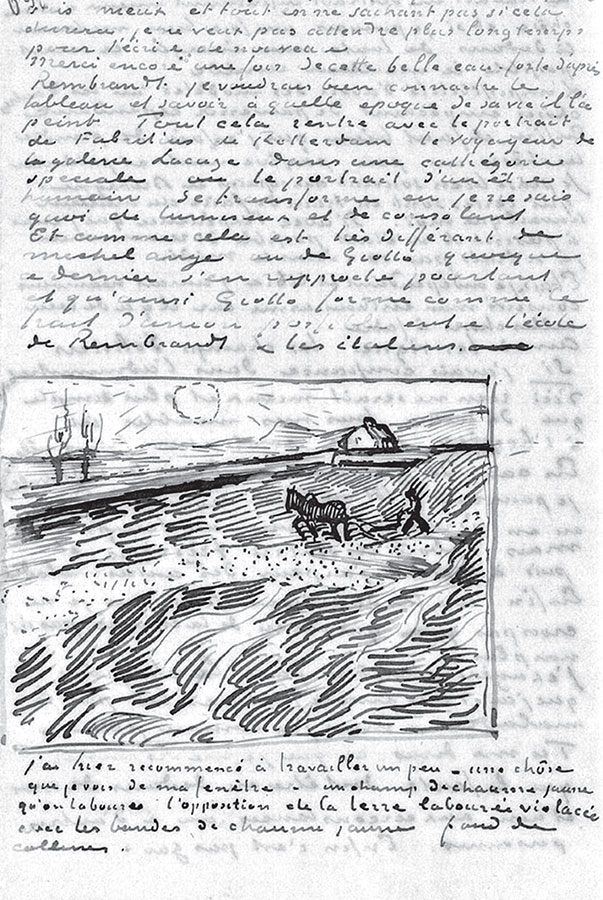 suis mieux et tout en ne sachant pas si cela
durera, je ne veux pas attendre plus longtemps
pour t'écrire de nouveau
Merci encore une fois de cette belle eau forte d'après
Rembrandt. je voudrais bien connaître le
tableau et savoir à quelle epoque de sa vie il l'a
peint Tout cela rentre avec le portrait
de Fabritius de Rotterdam le voyageur de
la galerie Lacaze dans une cathégorie
speciale où le portrait d'un être
humain se transforme en je ne sais
quoi de lumineux et de consolant
Et comme cela est très différent de
michel ange ou de Giotto quoique
ce dernier s'en rapproche pourtant
et qu'ainsi Giotto forme comme le
trait d'union possible entre l'école
de Rembrandt & les italiens.
j'ai hier recommencé à travailler un peu – une chôse
que je vois de ma fenêtre – un champ de chaume jaune
qu'on laboure l'opposition de la terre labourée violacée
avec les bandes de chaume jaune fond de
collines.